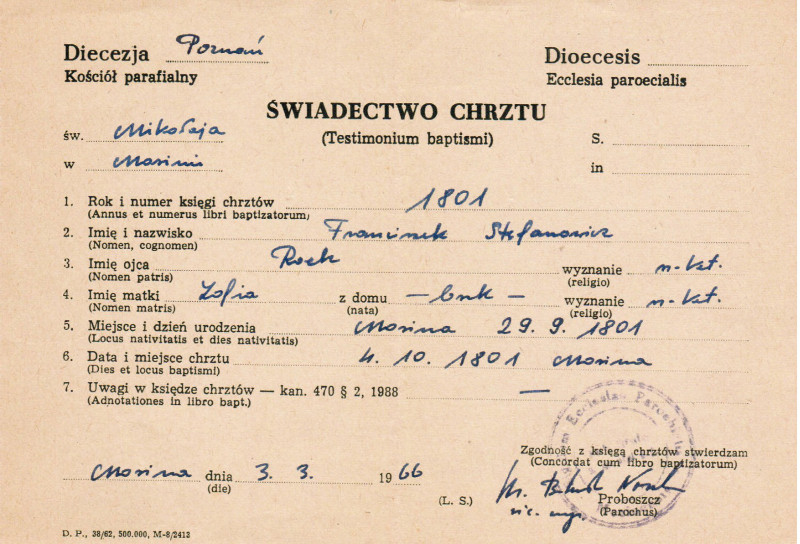 Diecezja Poznań Dioecesis
Kościół parafialny Ecclesia paroecialis
ŚWIADECTWO CHRZTU
św. Mikołaja (Testimonium baptismi) S.
w Mosinie in
1. Rok i numer księgi chrztów 1801
(Annus et numerus libri baptizatorum)
2. Imię i nazwisko Franciszek Stefanowicz
(Nomen, cognomen)
3. Imię ojca Roch wyznanie rz-kat.
(Nomen patris) (religio)
4. Imię matki Zofia z domu — brak — wyznanie rz-kat.
(Nomen matris) (nata) (religio)
5. Miejsce i dzień urodzenia Mosina 29. 9. 1801
(Locus nativitatis et dies nativitatis)
6. Data i miejsce chrztu 4. 10. 1801 Mosina
(Dies et locus baptismi)
7. Uwagi w księdze chrztów — kan. 470 § 2, 1988 —
(Adnotationes in libro bapt.)
Zgodność z księgą chrztów stwierdzam
(Concordat cum libro baptizatorum)
Mosina dnia 3. 3. 1966
(die)
(L. S.) Proboszcz
(Parochus)
D. P., 38/62, 500.000, M-8/2412